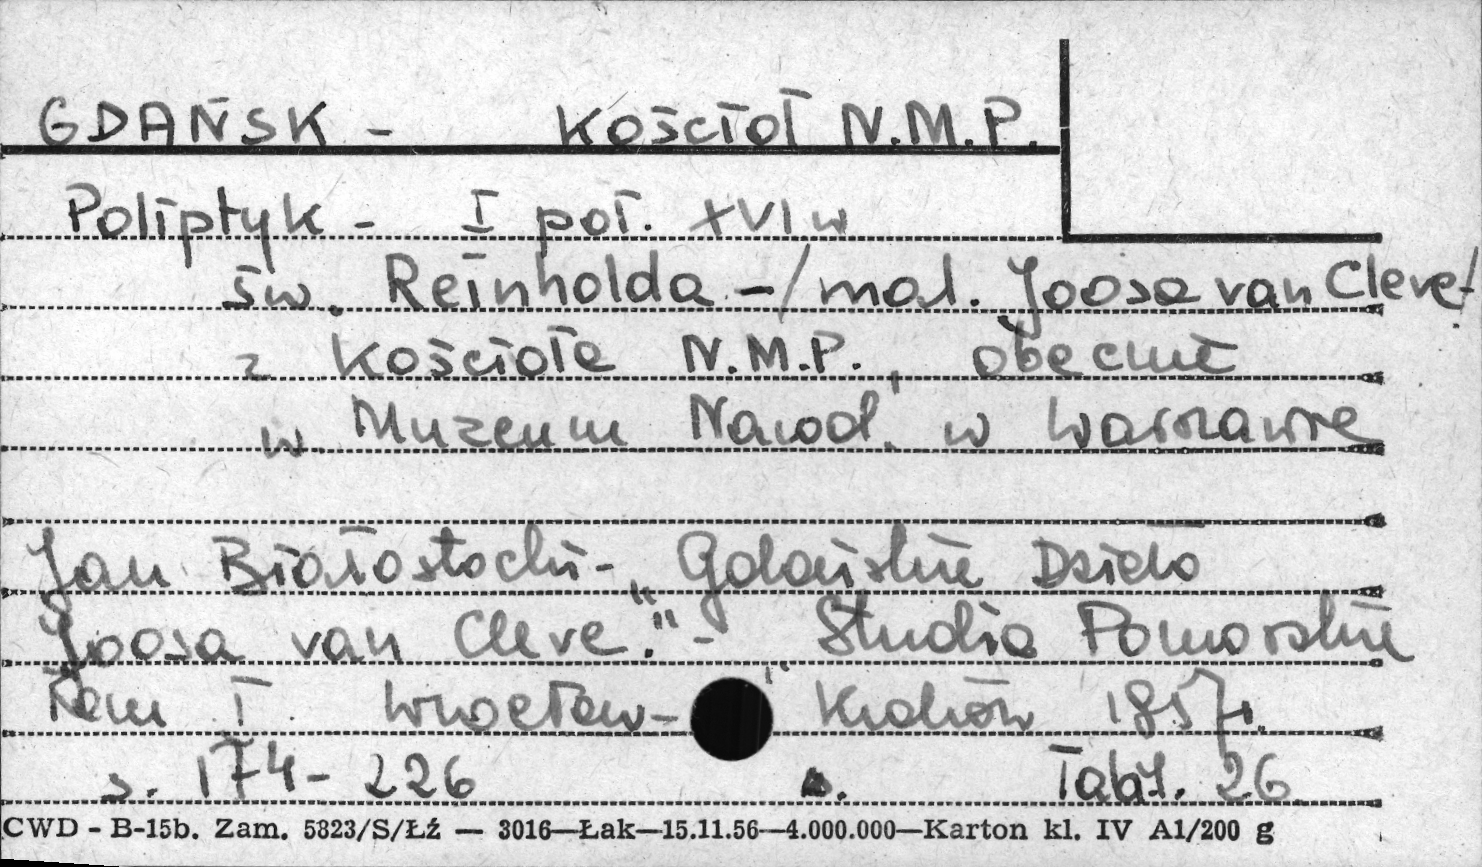 GDAŃSK - Kościoł N.M.P.
Poliptyk - I poł. XVI w
św. Reinholda - /mal. Joosa van Cleve/
z Kościoła N.M.P., obecnie
w Muzeum Narod. w Warszawie
Jan Białostocki - „Gdańskie Dzieło
Joosa van Cleve." - „Studia Pomorskie
Tom I Wrocław - Kraków 1857r.
s. 174 - 226 Tabl. 26
CWD - B-15b. Zam. 5823/S/Łź — 3016—Łak—15.11.56—4.000.000—Karton kl. IV A1/200 g